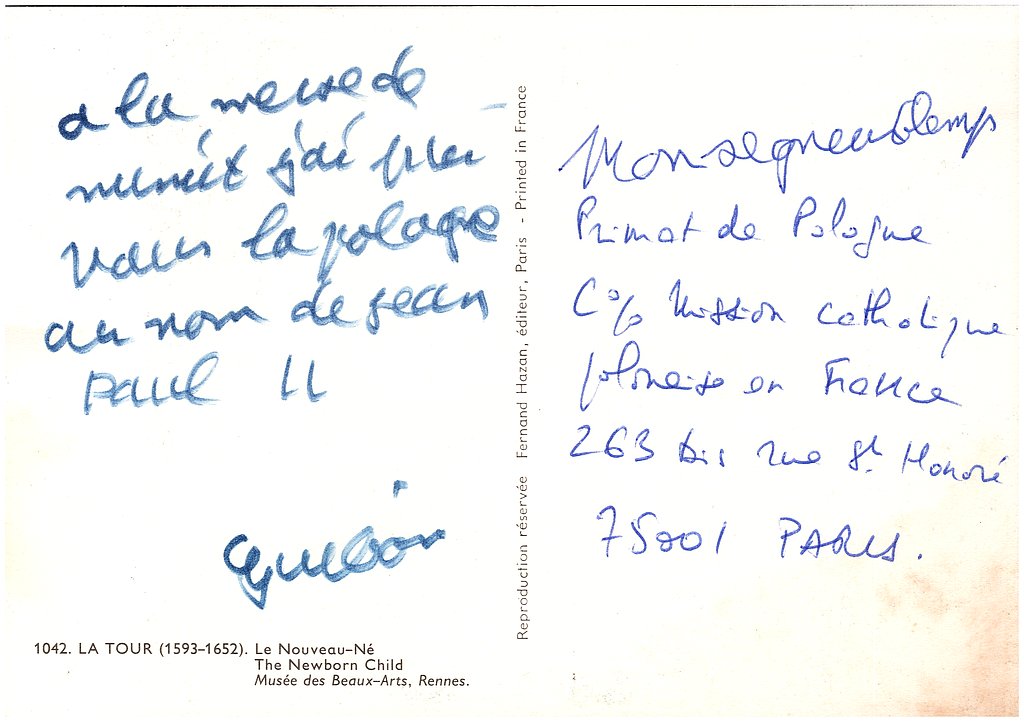 a la messe de
minuit j'ai prié
vous la pologne
au nom de jean
paul II
1042. LA TOUR (1593–1652). Le Nouveau–Né
The Newborn Child
Musée des Beaux–Arts, Rennes.
Reproduction réservée Fernand Hazan, éditeur, Paris - Printed in France
Monseigneur Glemp
Primat de Pologne
C% Mission catholique
polonaise en France
263 bis rue St Honoré
75001 PARIS.